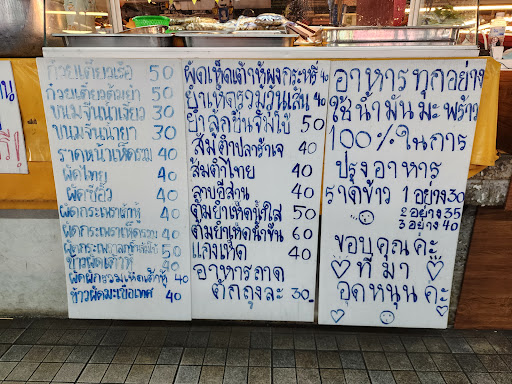 ก๋วยเตี๋ยวเรือ 50
ก๋วยเตี๋ยวต้มยำ 50
ขนมจีนน้ำเงี้ยว 30
ขนมจีนน้ำยา 30
ราดหน้าเห็ดรวม 40
ผัดไทย 40
ผัดซีอิ๊ว 40
ผัดกระเพราเต้าหู้ 40
ผัดกระเพราเห็ดรวม 40
ผัดกระเพรา 50
ข้าวผัดเต้าหู้ 40
ผัดผักรวมเห็ดเต้าหู้ 40
ข้าวผัดมะเขือเทศ 40
ผัดเห็ดเต้าหู้ผงกะหรี่ 40
ยำเห็ดรวมวุ้นเส้น 40
ยำลูกชิ้น 50
ส้มตำปลาร้าเจ 40
ส้มตำไทย 40
ลาบอีสาน 40
ต้มยำเห็ดน้ำใส 50
ต้มยำเห็ดน้ำข้น 60
แกงเห็ด 40
อาหารถาด
ตักถุงละ 30.-
อาหารทุกอย่าง
ใช้น้ำมันมะพร้าว
100% ในการ
ปรุงอาหาร
ราดข้าว 1 อย่าง 30
2 อย่าง 35
3 อย่าง 40
ขอบคุณค่ะ
ที่มา
อุดหนุนค่ะ